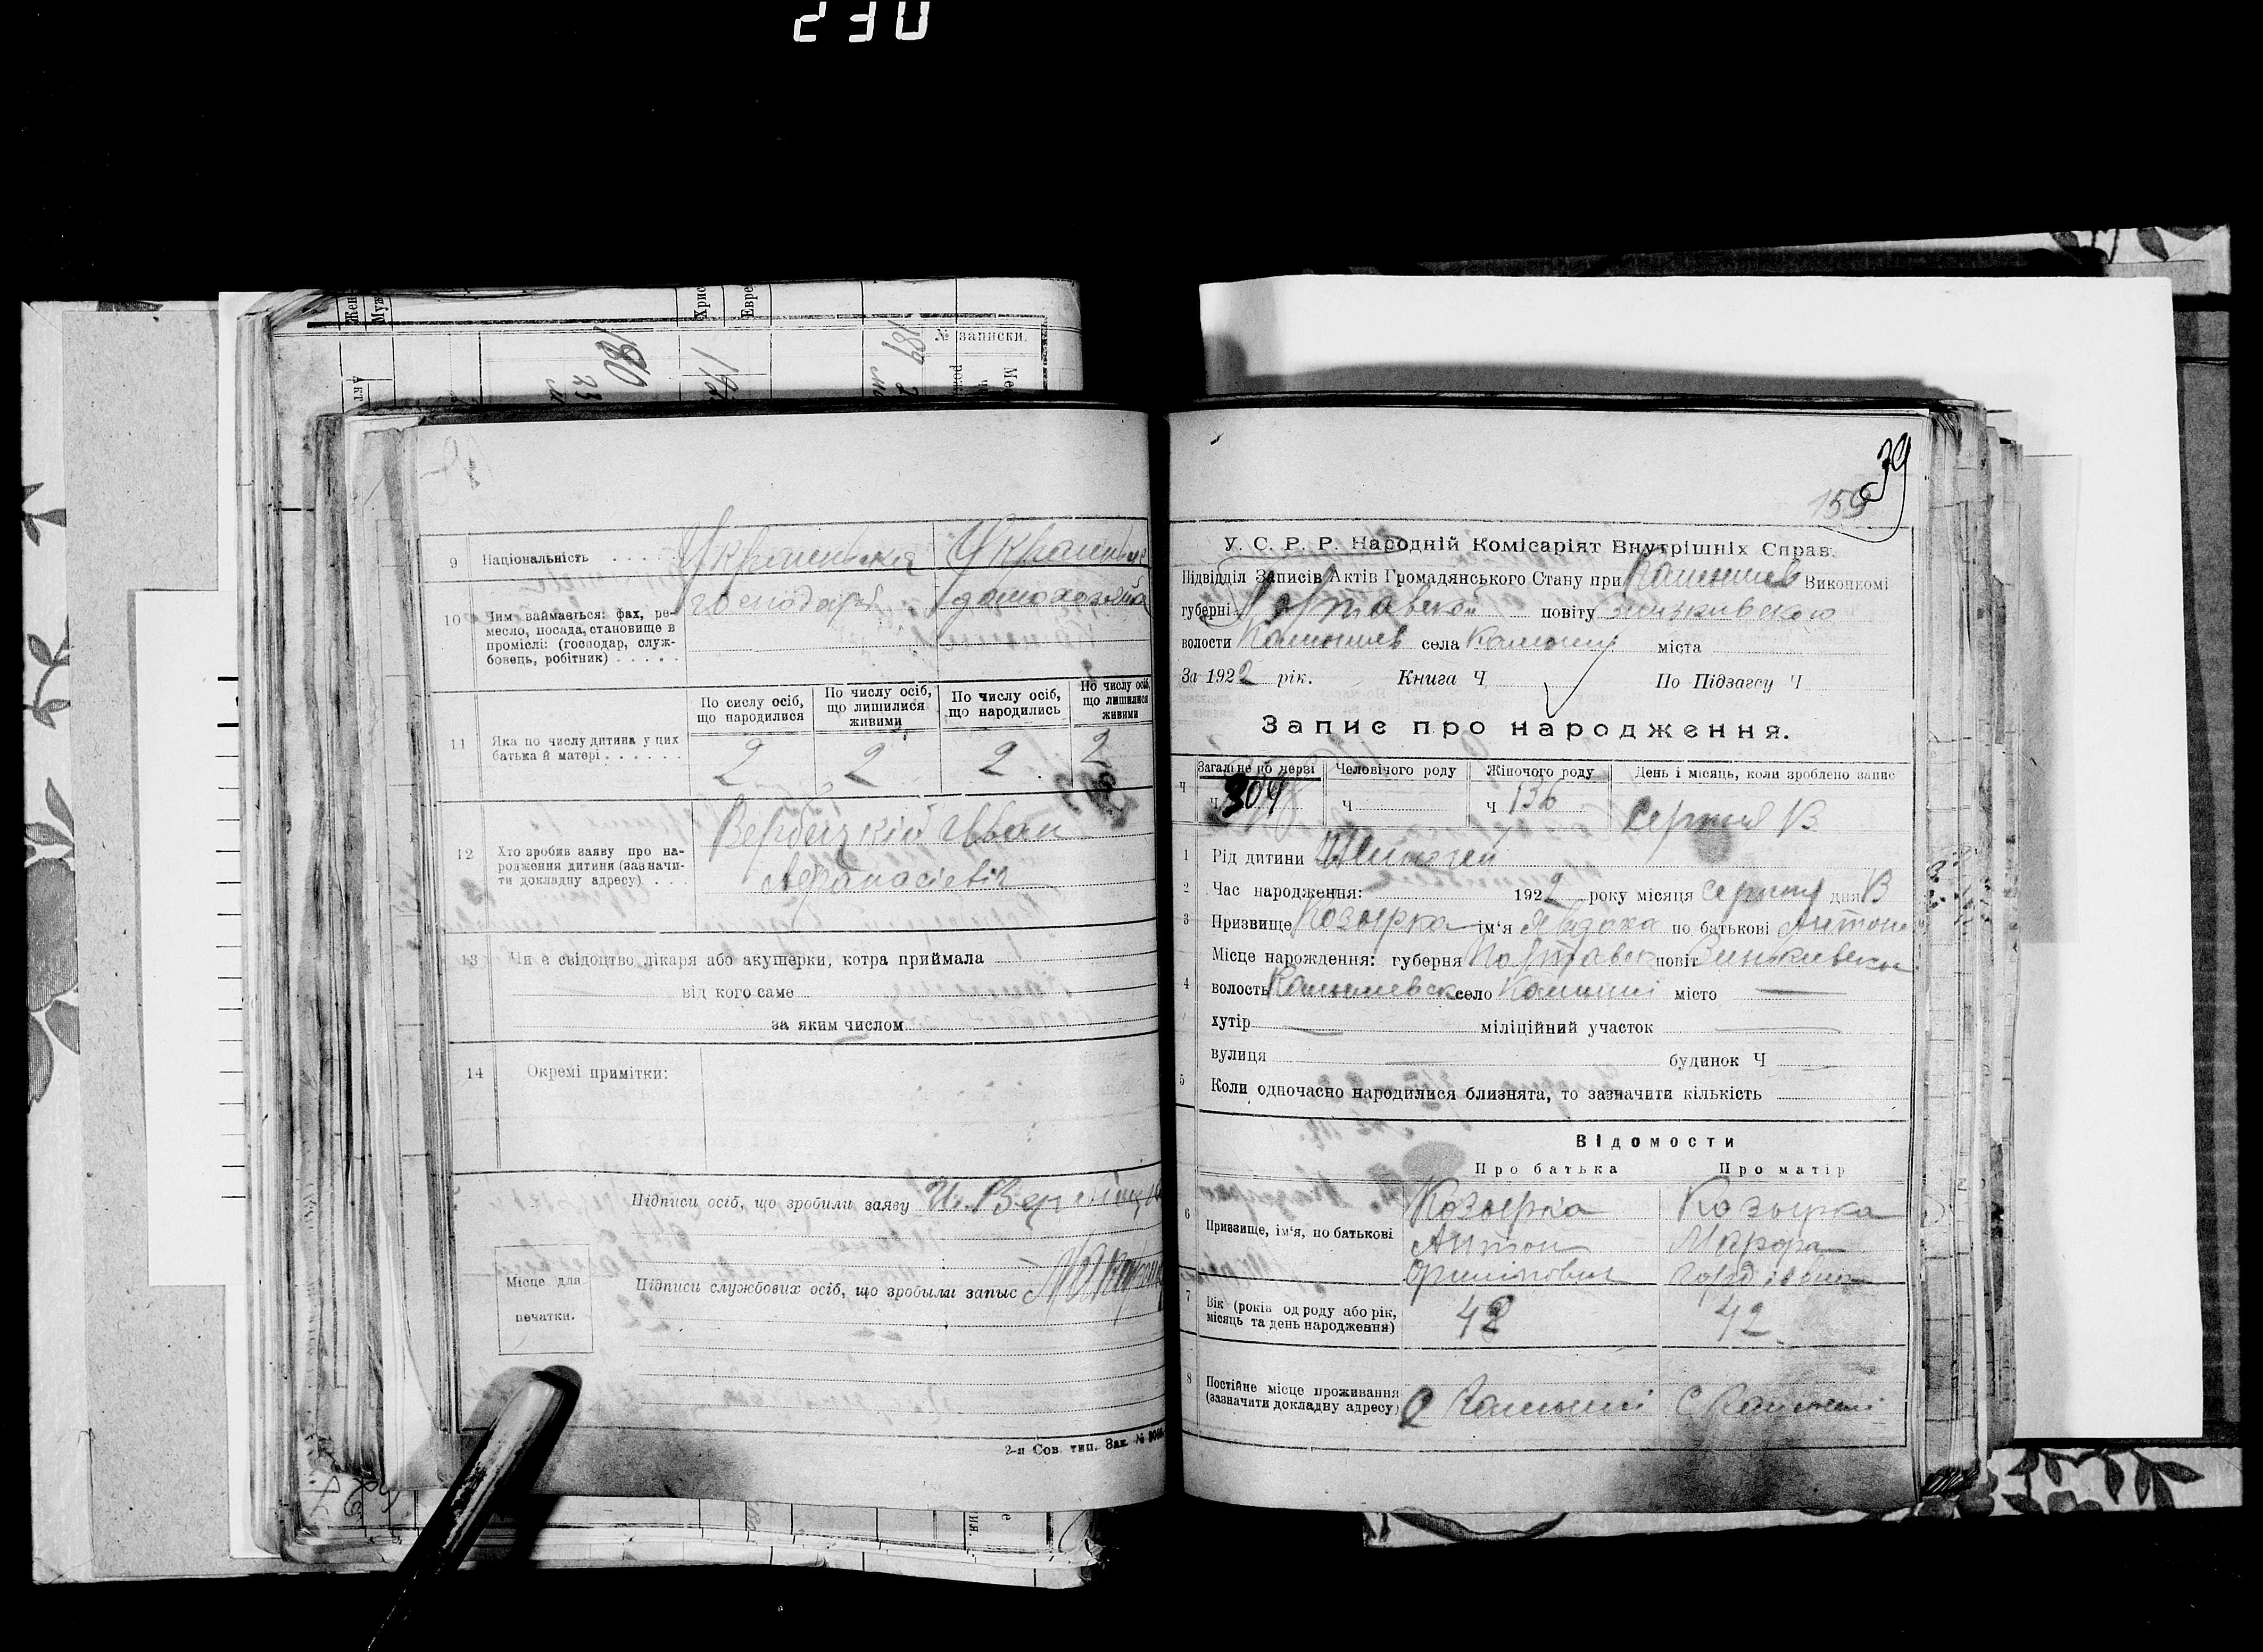 230
Жен
Муж
Хрис
Евре
№ записки.
189
180
9 Національність . . . . Украинская Украин
10 Чим займається: фах, ре-
месло, посада, становище в
проміслі: (господар, служ-
бовець, робітник) . . . . .
господарь домохозяйка
По сислу осіб,
що народилися
По числу осіб,
що лишилися
живими
По числу осіб,
що народились
По числу осіб,
що лишилися
живими
11 Яка по числу дитина у цих
батька й матері . . . . . .
2 2 2 2
12 Хто зробив заяву про на-
родження дитини (зазначи-
ти докладну адресу) . . .
Вербицкій Иван
Афанасіевіч
13 Чи є свідоцтво лікаря або акушерки, котра приймала
від кого саме
за яким числом
14 Окремі примітки:
Підписи осіб, що зробили заяву И. Вербіц
Місце для
печатки.
Підписи службових осіб, що зробыли запыс
2-я Сов. тип. Зак. №
39
159
У. С. Р. Р. Народній Комісаріят Внутрішніх Справ.
Підвідділ Записів Актів Громадянського Стану при Камышев Виконкомі
губерні Полтавской повіту Зинькивского
волости Камышев села Камыши міста
За 1922 рік. Книга Ч По Підзагсу Ч
Запис про народження.
Загальне по черзі Человічого роду Жіночого роду День і місяць, коли зроблено запис
Ч
Ч 309 Ч Ч 136 Серпня 13
1 Рід дитини Жиночей
2 Час народження: 1922 року місяця Серпня дня 13
3 Призвище Козырка ім'я Явдоха по батькові Антон
4 Місце нарождення: губерня Полтавск повіт Зинькивск
волость Камышевск село Камыші місто —
хутір — міліційний участок —
вулиця — будинок Ч —
5 Коли одночасно народилися близнята, то зазначити кількість
Відомости
Про батька Про матір
6 Призвище, ім'я, по батькові
Козырка Козырка
Антон Марфа
7 Вік (років од роду або рік,
місяць та день народження)
42 42
8 Постійне місце проживання
(зазначити докладну адресу)
С Камыші С Камыші